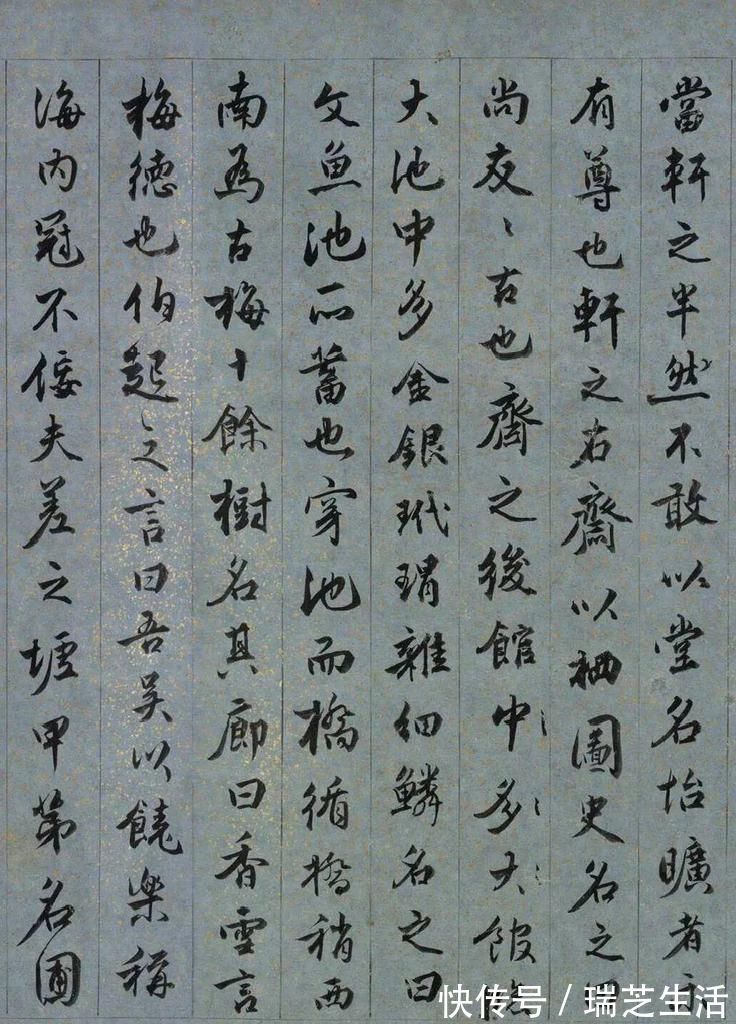 當軒之半然不敢以堂名怡曠者示
有尊也軒之右齋以栖圖史名之曰
尚友〻古也齋之後館中多大館臨
大池中多金銀玳瑁雜細鱗名之曰
文魚池所蓄也穿池而橋循橋稍西
南為古梅十餘樹名其廊曰香雪言
梅德也伯起之言曰吾吳以饒樂稱
海内冠不佞夫差之墟甲第名圃
快传号 / 瑞芝生活